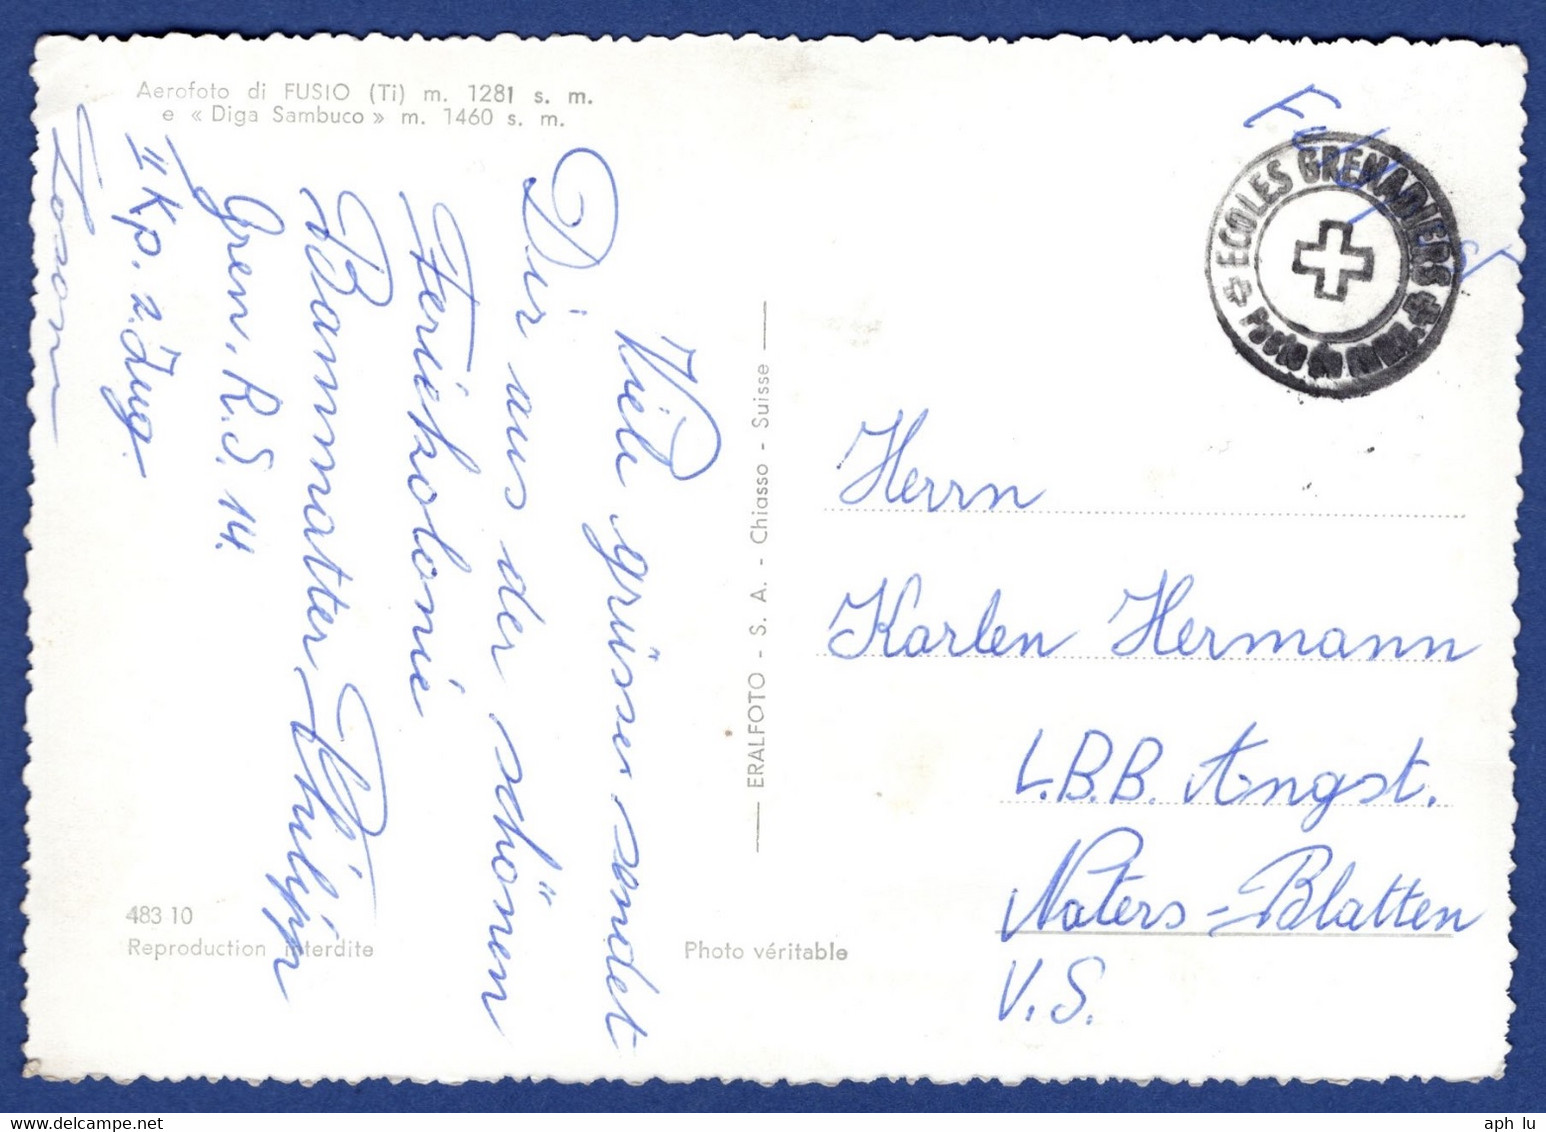 Aerofoto di FUSIO (Ti) m. 1281 s. m.
e « Diga Sambuco » m. 1460 s. m.
Viele grüsse sendet
Dir aus der schönen
Ferienkolonie
Bammatter Philipp
Gren. R.S. 14.
II Kp. 2. Zug.
Losone
ERALFOTO - S. A. - Chiasso - Suisse
483 10
Reproduction interdite
Photo véritable
Feldpost
ECOLES GRENADIERS
Poste de camp.
Herrn
Karlen Hermann
L.B.B. Angst.
Naters-Blatten
V.S.
aph lu